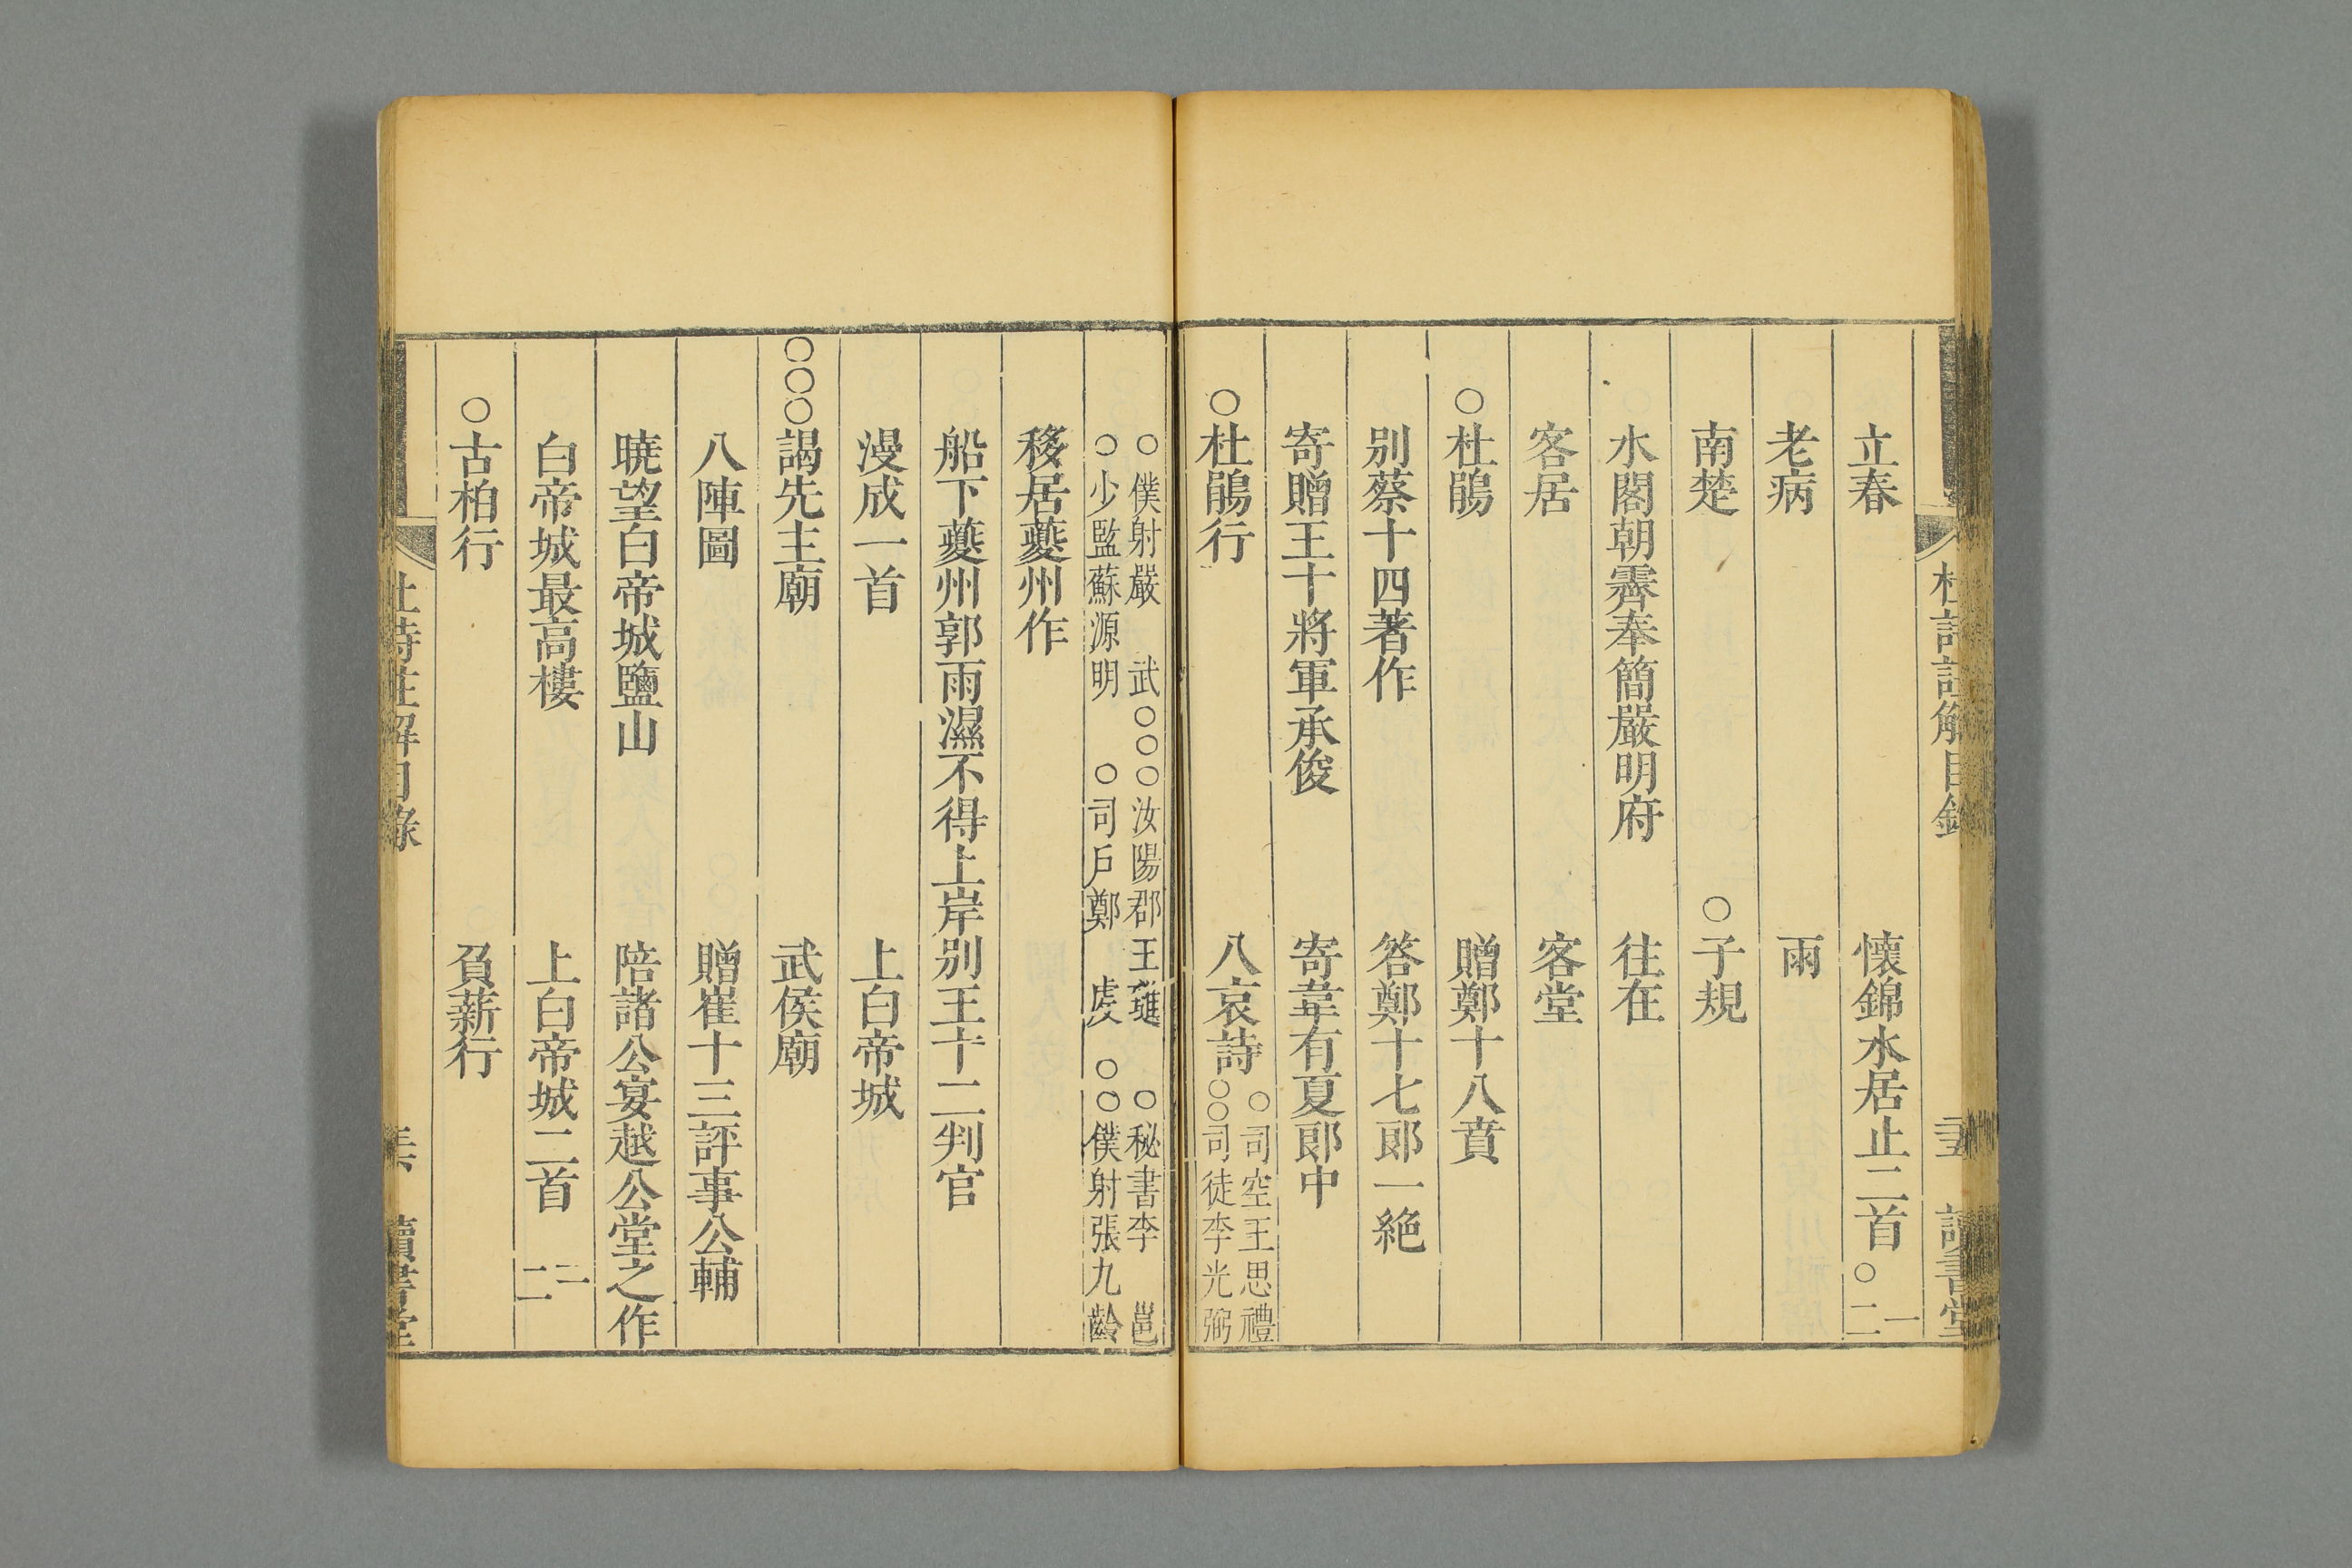 杜詩註解目錄　　　𦊁　讀書堂
立春　　　　　　　　懷錦水居止二首○一二
老病　　　　　　　　雨
南楚　　　　　　　○子規
水閣朝霽奉簡嚴明府　　往在
客居　　　　　　　　客堂
○杜鵑　　　　　　　贈鄭十八賁
別蔡十四著作　　　　答鄭十七郎一絕
寄贈王十將軍承俊　　寄韋有夏郎中
○杜鵑行　　　　　　八哀詩
○司空王思禮
○○司徒李光弼
○僕射嚴　武○○○汝陽郡王璡　○秘書李　邕
○少監蘇源明　○司戶鄭　虔　○○僕射張九齡
移居夔州作
船下夔州郭雨濕不得上岸別王十二判官
漫成一首　　　　　　上白帝城
○○○謁先主廟　　　武侯廟
八陣圖　　　　　　　贈崔十三評事公輔
曉望白帝城鹽山　　　陪諸公宴越公堂之作
白帝城最高樓　　　　上白帝城二首　一二
○古柏行　　　　　　負薪行
杜詩註解目錄　　　　讀書堂